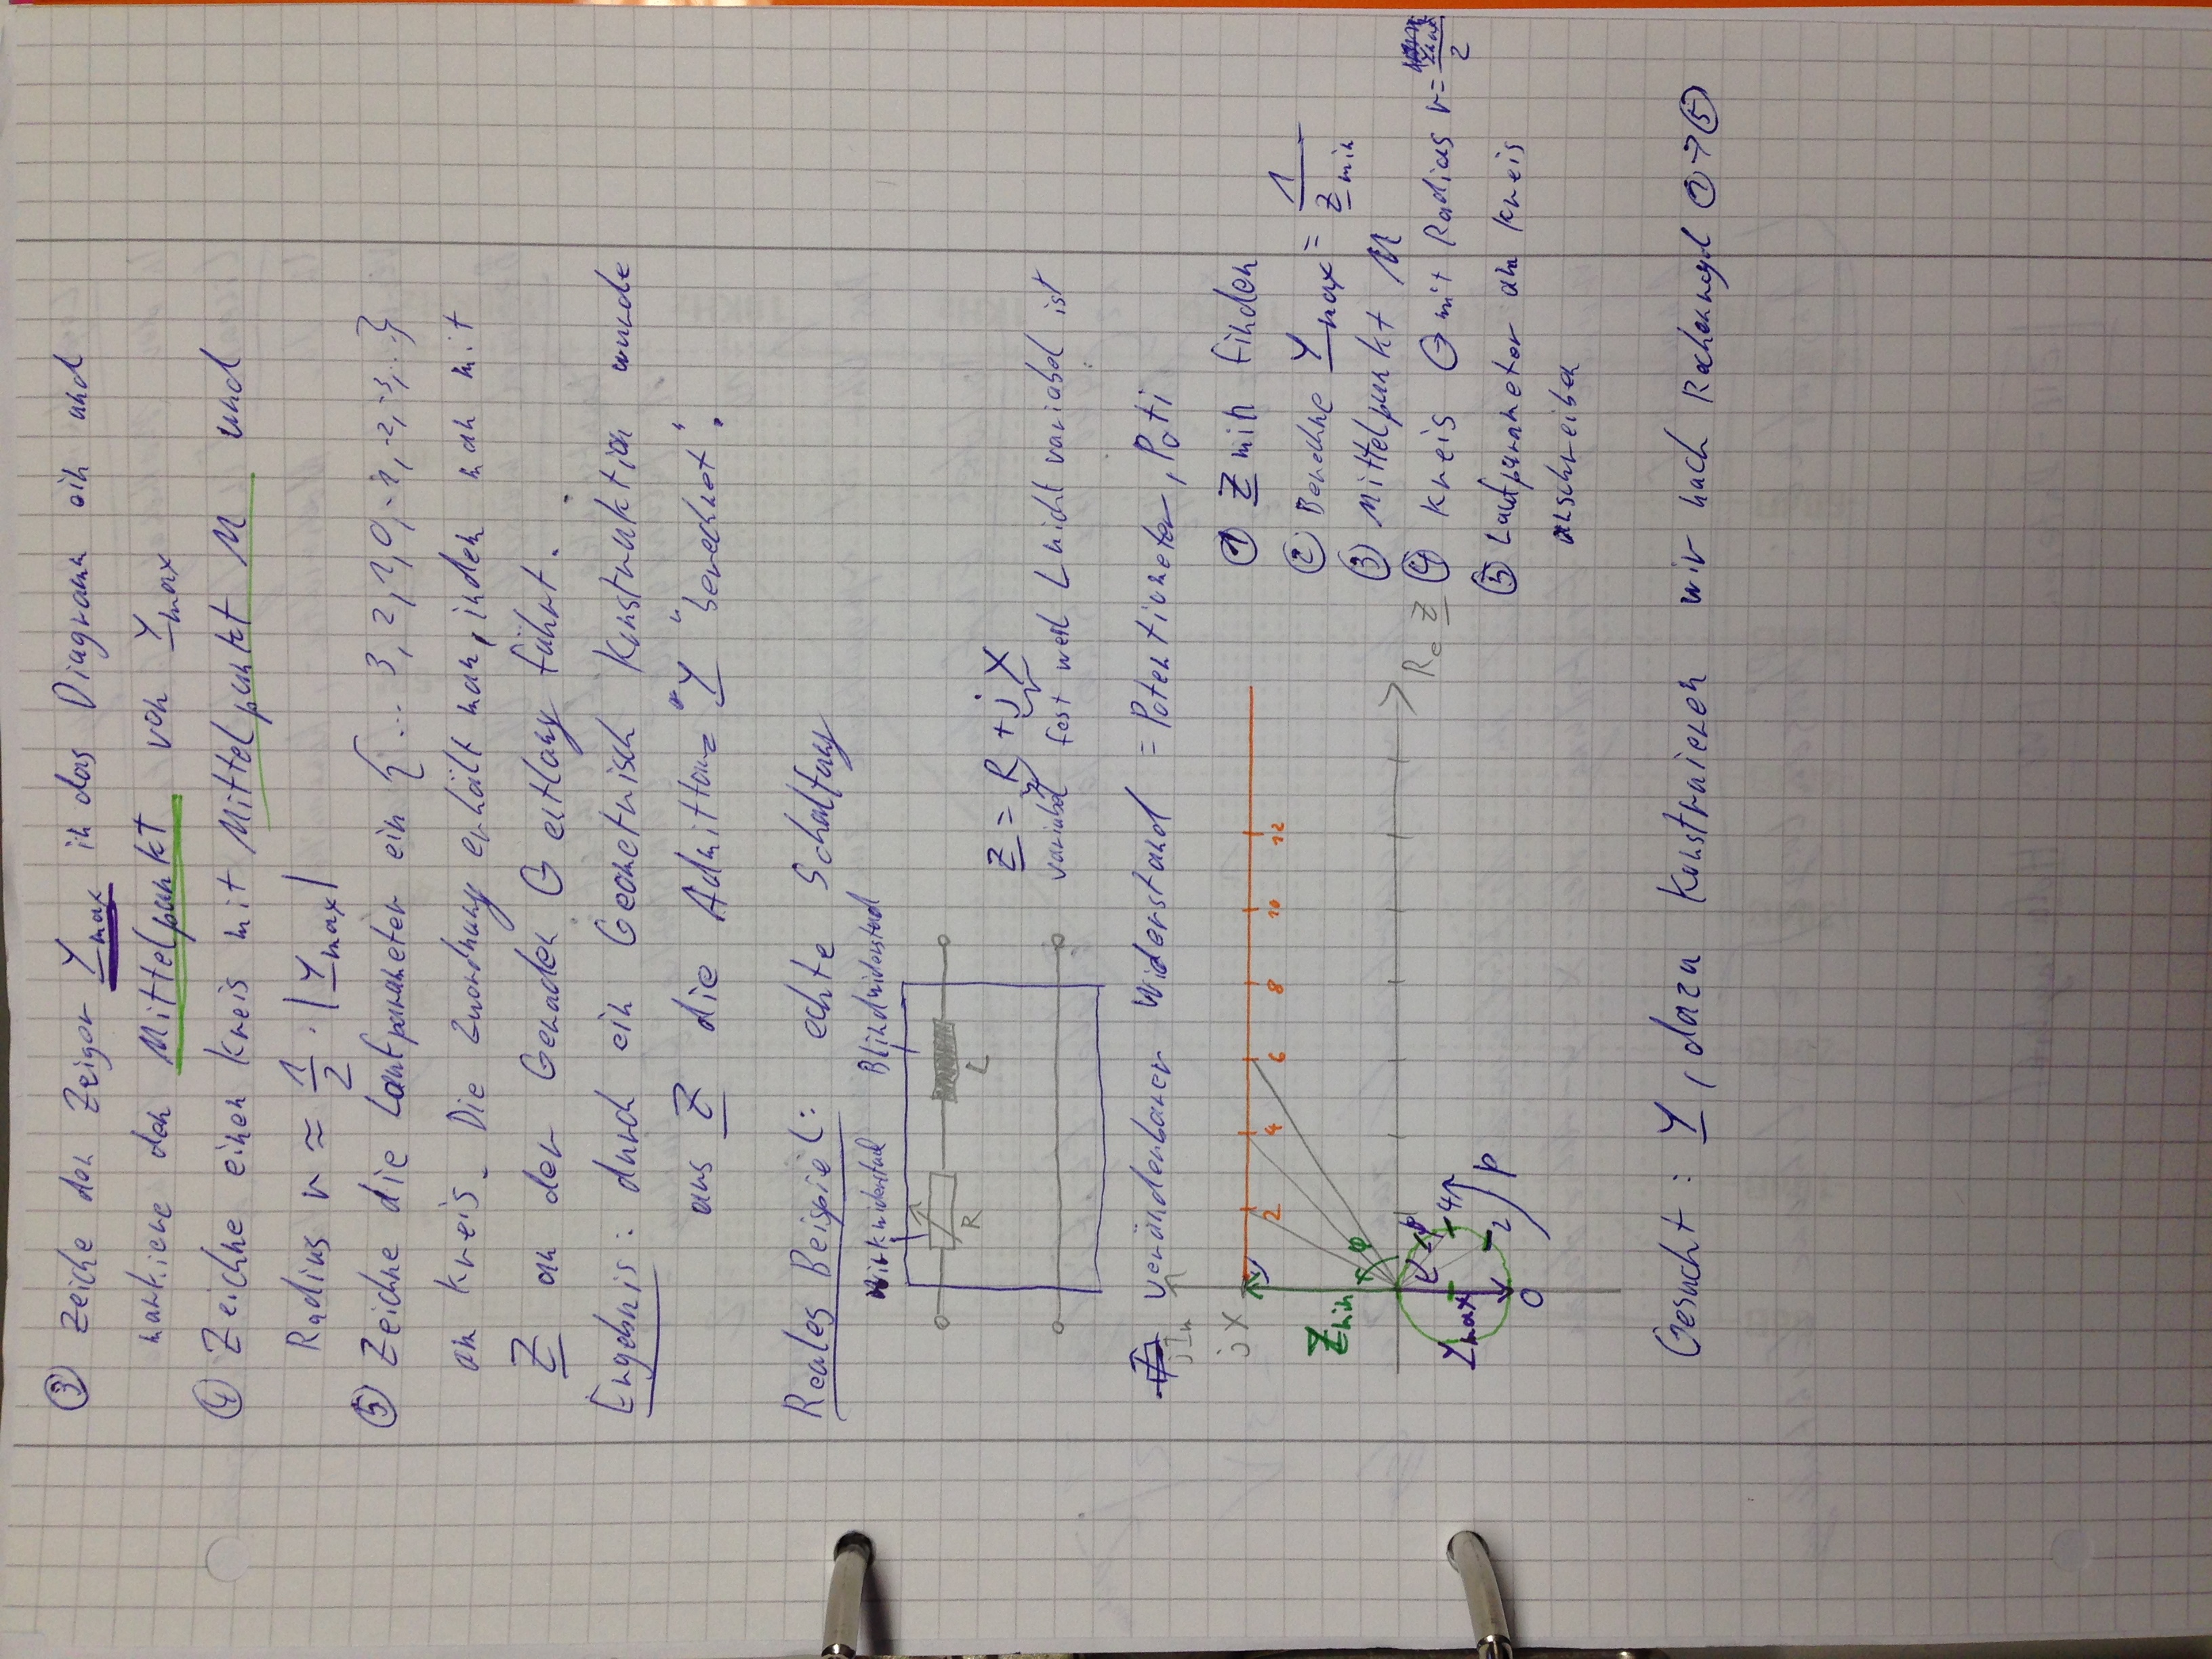 ③ Zeiche den Zeiger Y_max in das Diagramm ein und
markiere den Mittelpunkt von Y_max
④ Zeichne einen Kreis mit Mittelpunkt M und
Radius r ≈ 1/2 · |Y_max|
⑤ Zeichne die Laufparameter ein {... 3, 2, 1, 0, -1, -2, -3, ...}
am Kreis. Die Zuordnung erhält man, indem man mit
Z an der Geraden G entlang führt.
Ergebnis: durch ein Geometrisch Konstruktion wurde
aus Z die Admittanz "Y" "berechnet".
Reales Beispiel: echte Schaltung
Wirkwiderstad Blindwiderstad
R L
Z = R + jX
variabel fest weil L nicht variabel ist
veränderbarer Widerstand = Potentiometer, Poti
jX
2 4 6 8 10 12
Z_min
φ
Re Z
Y_max
4
2
p
0
① Z min finden
② Berechne Y_max = 1/Z_min
③ Mittelpunkt M
④ Kreis G mit Radius r = Y_max/2
⑤ Laufparameter am Kreis
anschreiben
Gesucht: Y, dazu Konstruieren wir nach Rechenregel ① → ⑤